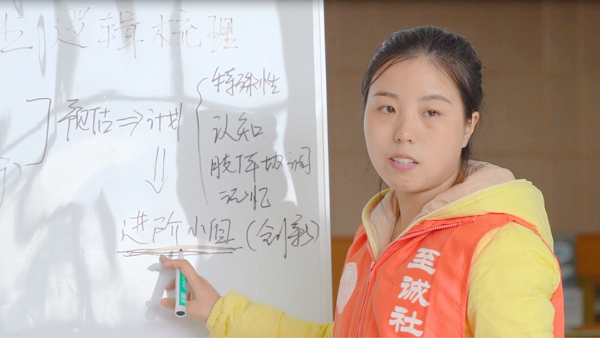 逻辑梳理
预估⇒计划
特殊性
认知
肢体协调
记忆
进阶小组(创新)
至诚社